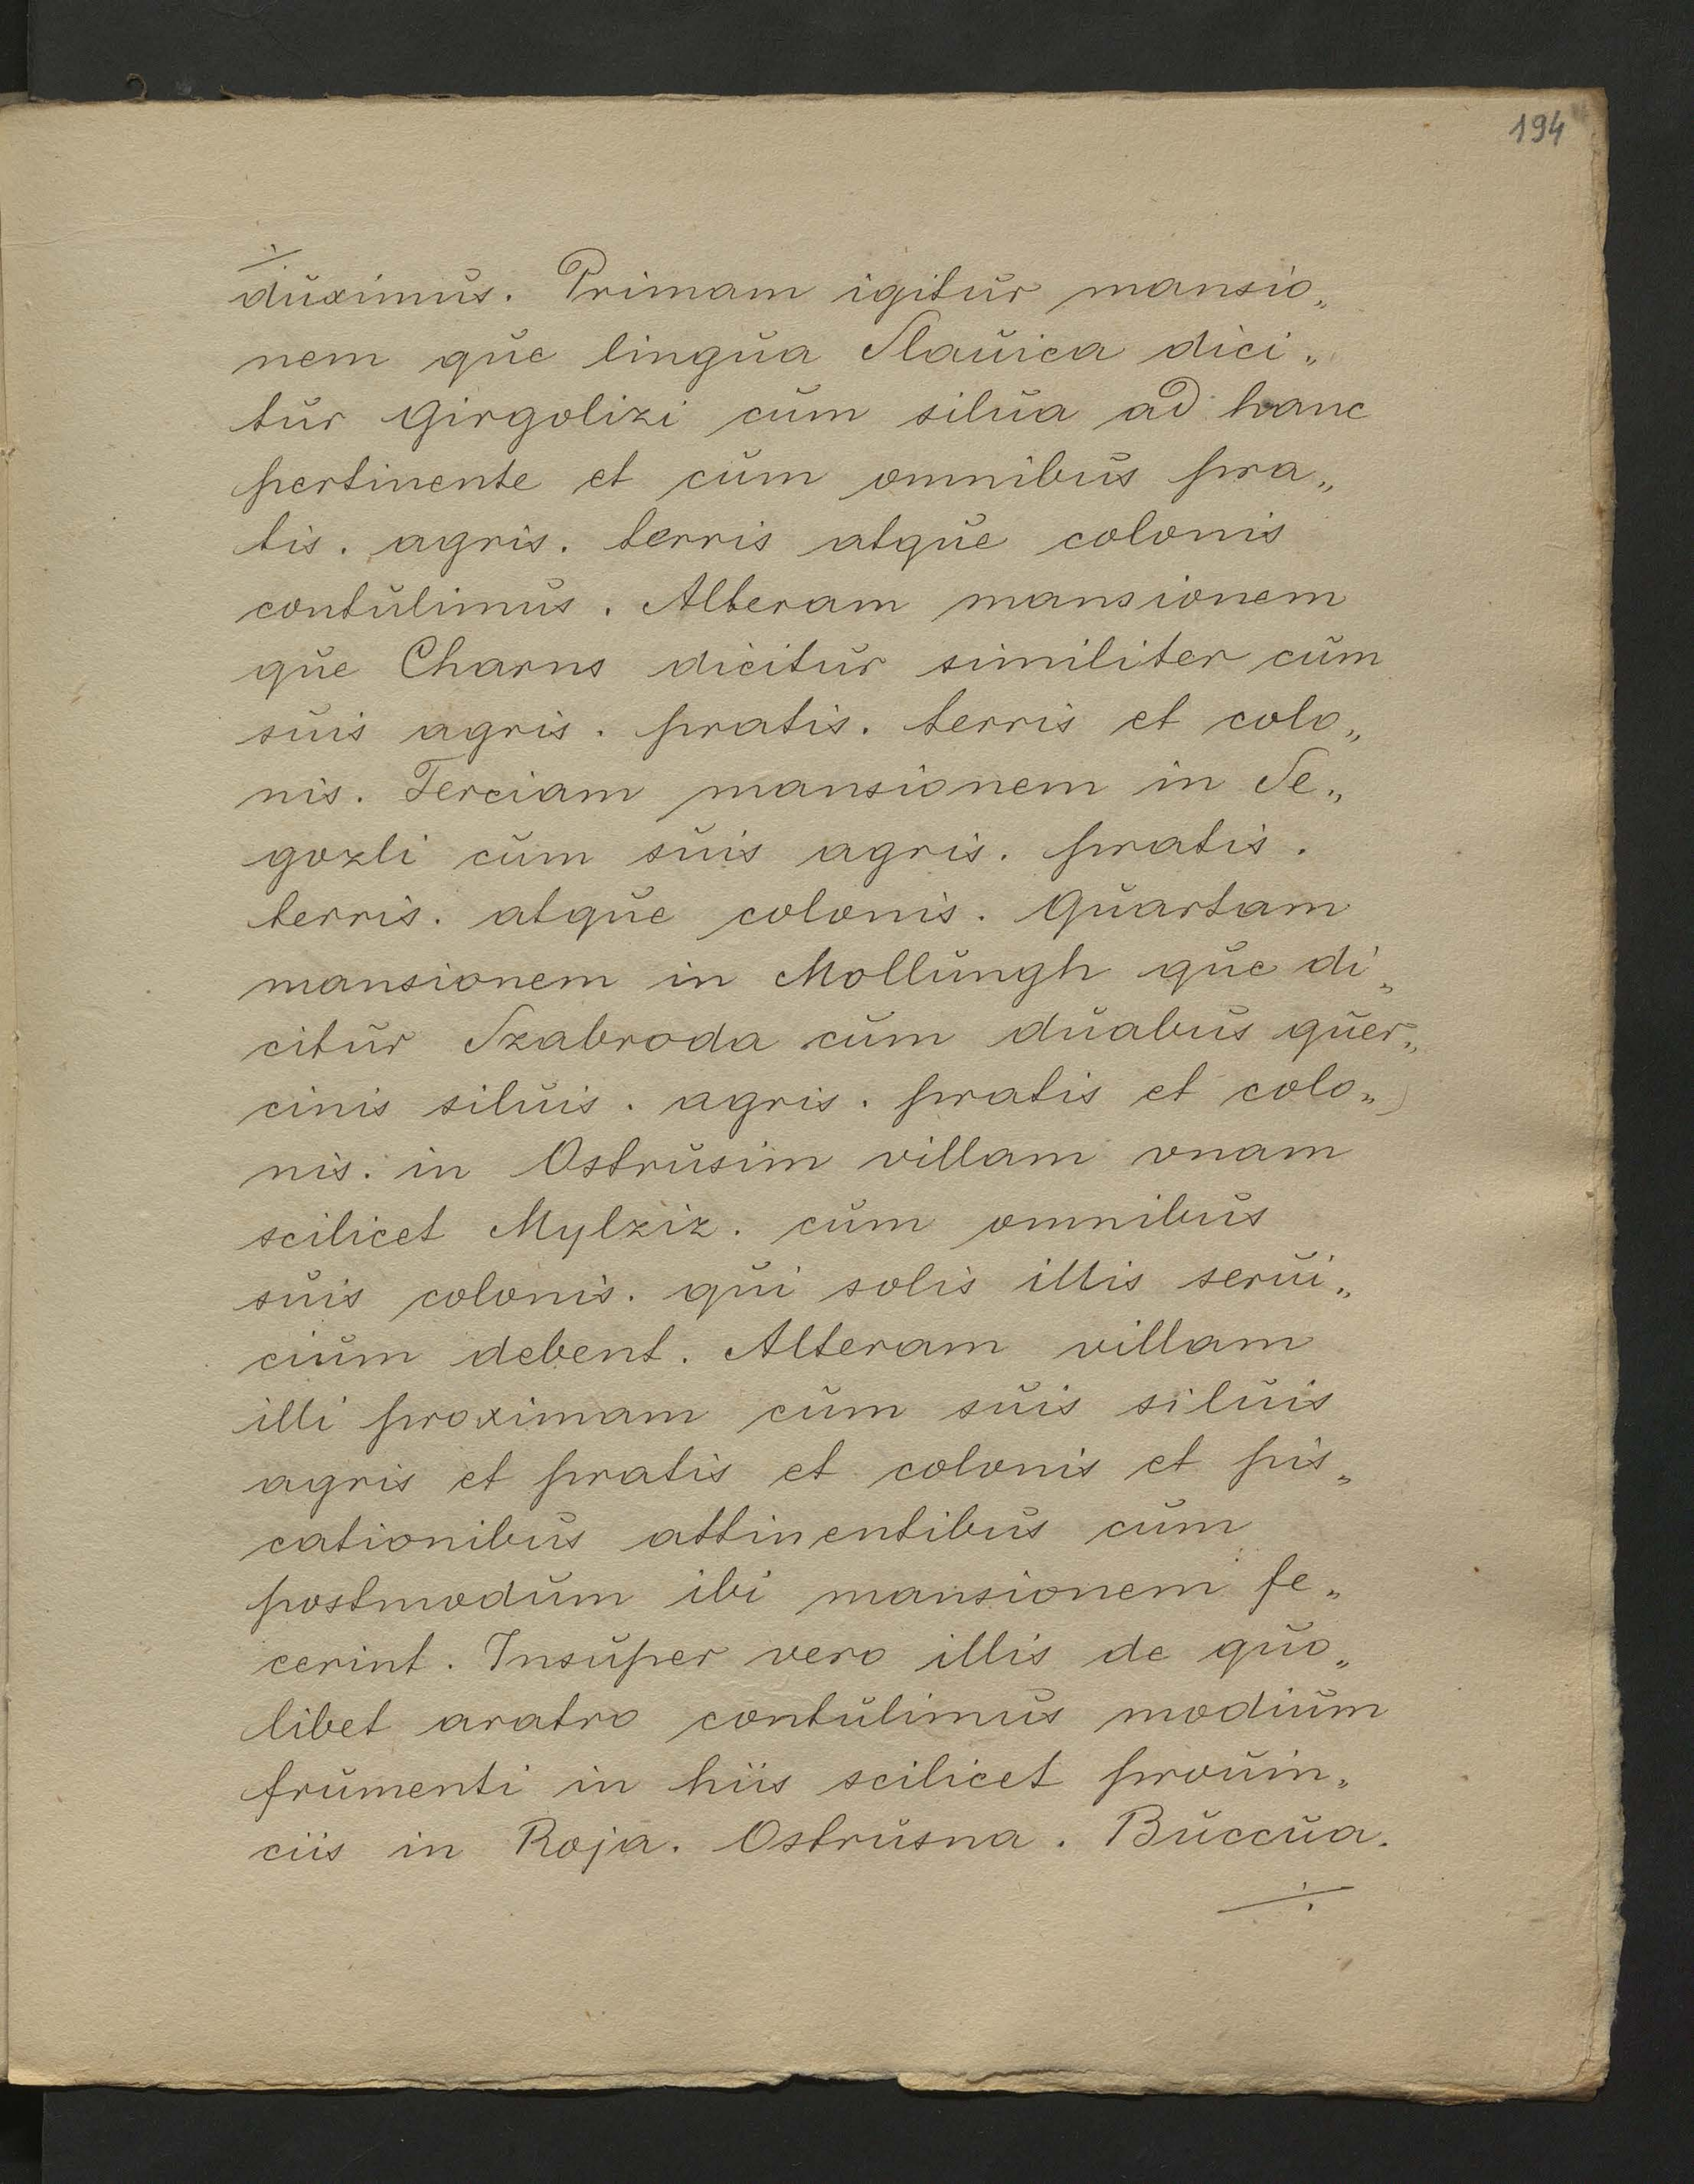 194
duximus. Primam igitur mansio„
nem que lingua Slauica dici„
tur Girgolizi cum silua ad hanc
pertinente et cum omnibus pra„
tis. agris. terris atque colonis
contulimus. Alteram mansionem
que Charns dicitur similiter cum
suis agris. pratis. terris et colo„
nis. Terciam mansionem in Se„
gozli cum suis agris. pratis.
terris. atque colonis. Quartam
mansionem in Mollungh que di„
citur Szabroda cum duabus quer„
cinis siluis. agris. pratis et colo„
nis. in Ostrusim villam vnam
scilicet Mylziz. cum omnibus
suis colonis. qui solis illis serui„
cium debent. Alteram villam
illi proximam cum suis siluis
agris et pratis et colonis et pis„
cationibus attinentibus cum
postmodum ibi mansionem fe„
cerint. Insuper vero illis de quo„
libet aratro contulimus modium
frumenti in hiis scilicet prouin„
ciis in Roja. Ostrusna. Buccua.